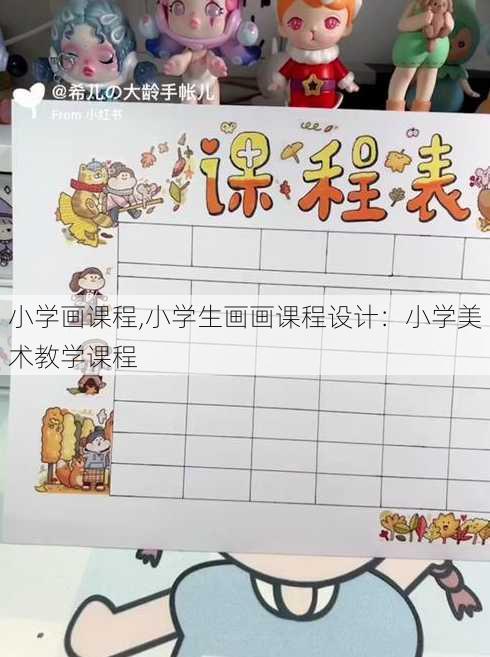 @希儿の大龄手帐儿
From 小红书
课程表
小学画课程,小学生画画课程设计：小学美
术教学课程